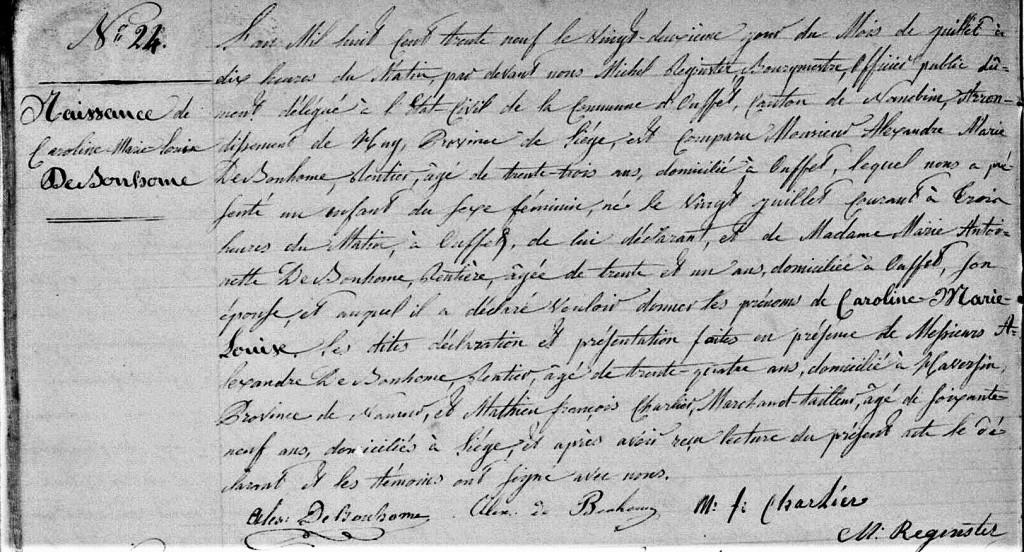 N.º 24.
Naissance de
Caroline Marie Louise
De Bonhome
L'an Mil huit Cent trente neuf le Vingt-deuxième jour du Mois de juillet à
dix heures du Matin, par devant nous Michel Reginster, Bourgmestre, Officier public dû-
ment délégué à l'Etat Civil de la Commune d'Ouffet, Canton de Nandrin, Arron-
dissement de Huy, Province de Liége, est Comparu Monsieur Alexandre Marie
De Bonhome, Rentier, âgé de trente-trois ans, domicilié à Ouffet, lequel nous a pré-
senté un enfant du sexe féminin, né le Vingt juillet Courant à Trois
heures du Matin, à Ouffet, de lui déclarant, et de Madame Marie Antoi-
nette De Bonhome, Rentière, âgée de trente et un ans, domiciliée à Ouffet, son
épouse, et auquel il a déclaré Vouloir donner les prénoms de Caroline Marie
Louise, les dites déclaration et présentation faites en présence de Messieurs A-
lexandre De Bonhome, Rentier, âgé de trente-quatre ans, domicilié à Haversin,
Province de Namur, et Mathieu françois Charlier, Marchand-tailleur, âgé de soixante-
neuf ans, domiciliés à Liége, et après avoir reçu lecture du présent acte le dé-
clarant et les témoins ont signé avec nous.
Alex. De Bonhome Alex. de Bonhome M. f. Charlier
M. Reginster